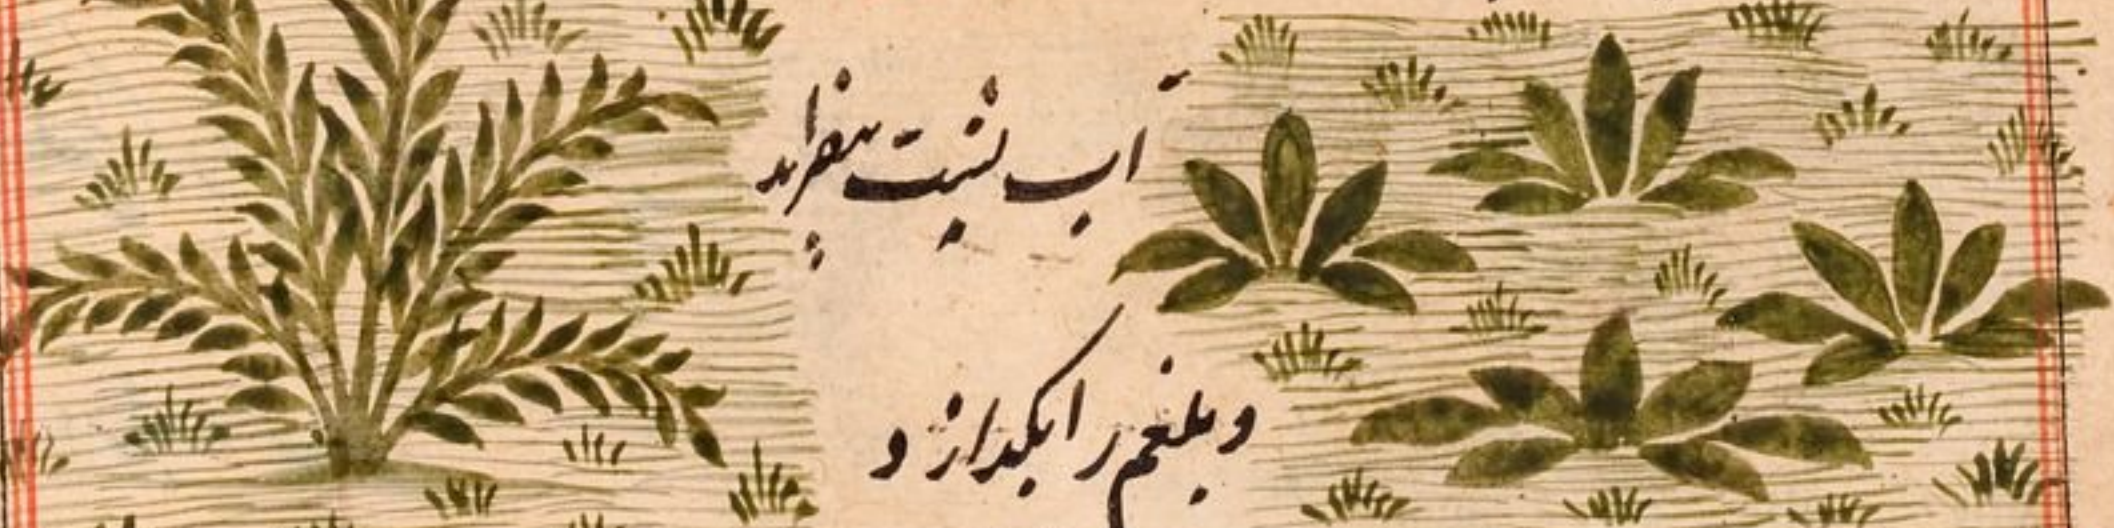 آب پشت بیفزاید
و بلغم را بکدازد و